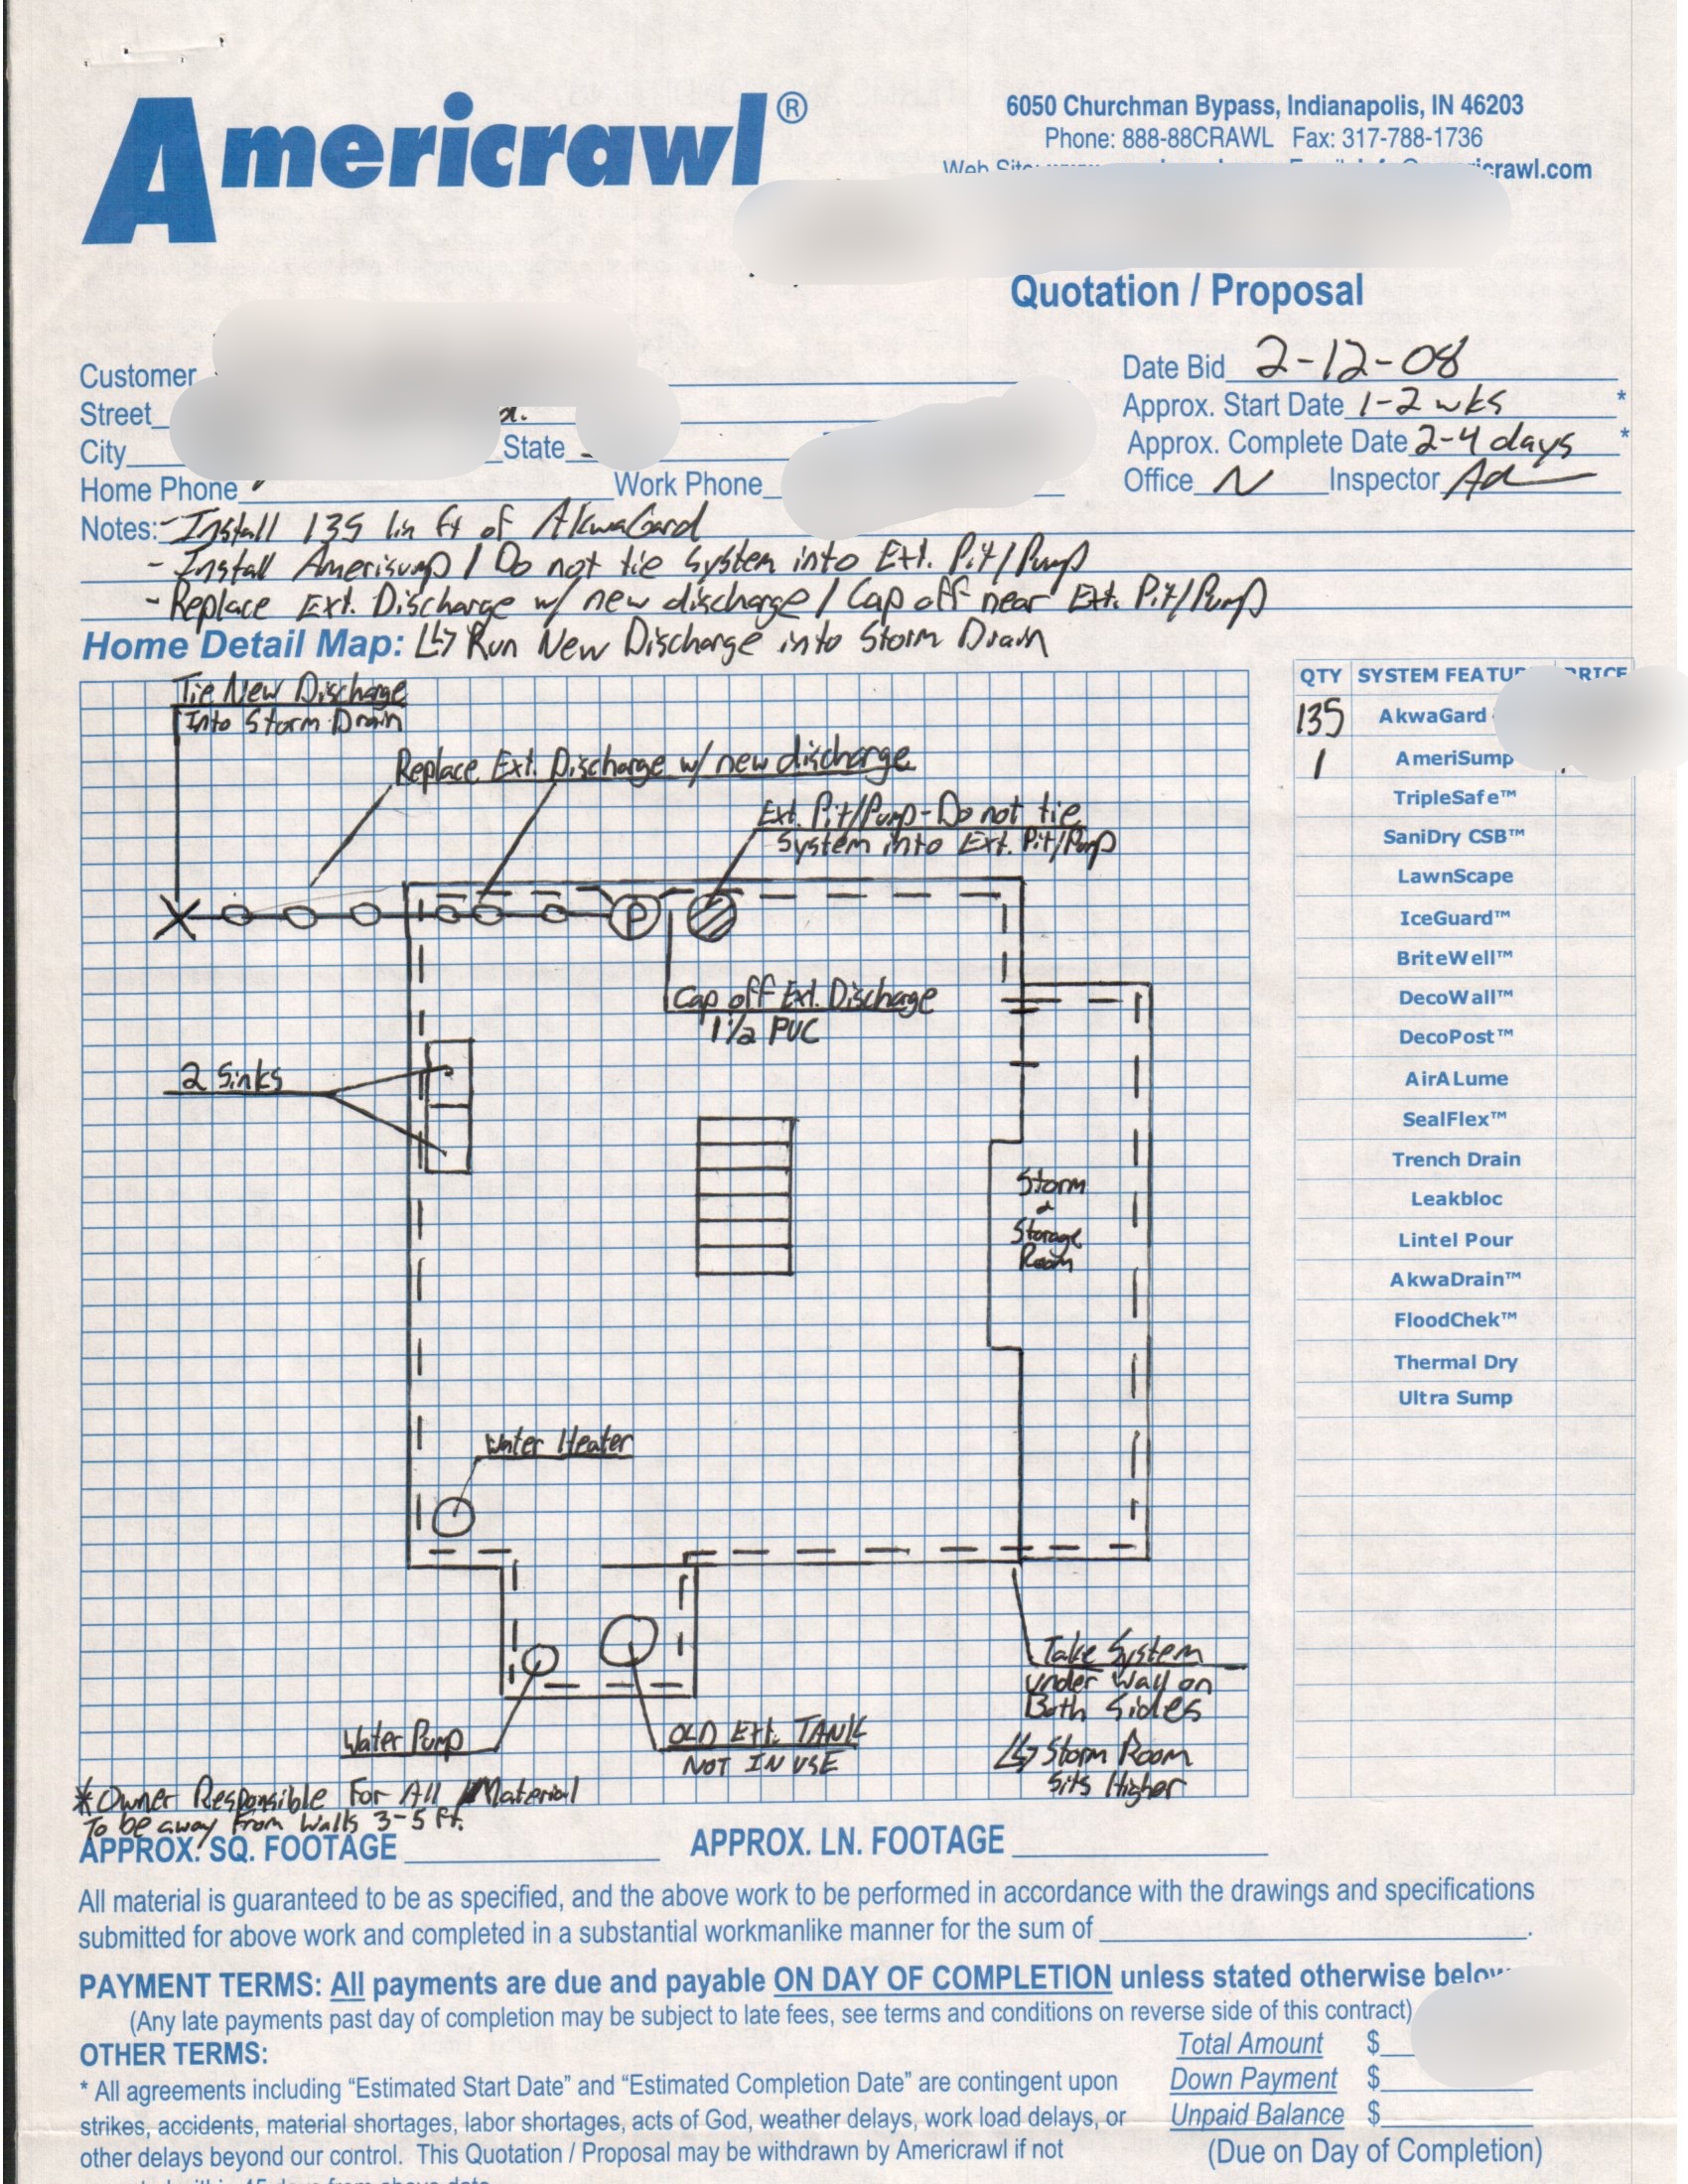 Americrawl®
6050 Churchman Bypass, Indianapolis, IN 46203
Phone: 888-88CRAWL Fax: 317-788-1736
Web Site: crawl.com
Quotation / Proposal
Customer
Street
City State
Home Phone Work Phone
Date Bid 2-12-08
Approx. Start Date 1-2 wks *
Approx. Complete Date 2-4 days *
Office N Inspector
Notes: - Install 135 lin ft of AkwaGard
- Install Amerisump / Do not tie system into Ext. Pit/Pump
- Replace Ext. Discharge w/ new discharge / Cap off near Ext. Pit/Pump
Home Detail Map: ↳ Run New Discharge into Storm Drain
Tie New Discharge
Into Storm Drain
Replace Ext. Discharge w/ new discharge
Ext. Pit/Pump - Do not tie
System into Ext. Pit/Pump
P
Cap off Ext. Discharge
1 1/2 PVC
2 Sinks
Storm
&
Storage
Room
Water Heater
Take System
under Wall on
Both Sides
↳ Storm Room
Sits Higher
Water Pump
OLD Ext. TANK
NOT IN USE
* Owner Responsible For All Material
To be away from Walls 3-5 ft.
QTY SYSTEM
135 AkwaGard
1 AmeriSump
TripleSafe™
SaniDry CSB™
LawnScape
IceGuard™
BriteWell™
DecoWall™
DecoPost™
AirALume
SealFlex™
Trench Drain
Leakbloc
Lintel Pour
AkwaDrain™
FloodChek™
Thermal Dry
Ultra Sump
APPROX. SQ. FOOTAGE APPROX. LN. FOOTAGE
All material is guaranteed to be as specified, and the above work to be performed in accordance with the drawings and specifications
submitted for above work and completed in a substantial workmanlike manner for the sum of .
PAYMENT TERMS: All payments are due and payable ON DAY OF COMPLETION unless stated otherwise below
(Any late payments past day of completion may be subject to late fees, see terms and conditions on reverse side of this contract)
OTHER TERMS:
* All agreements including “Estimated Start Date” and “Estimated Completion Date” are contingent upon
strikes, accidents, material shortages, labor shortages, acts of God, weather delays, work load delays, or
other delays beyond our control. This Quotation / Proposal may be withdrawn by Americrawl if not
Total Amount $
Down Payment $
Unpaid Balance $
(Due on Day of Completion)